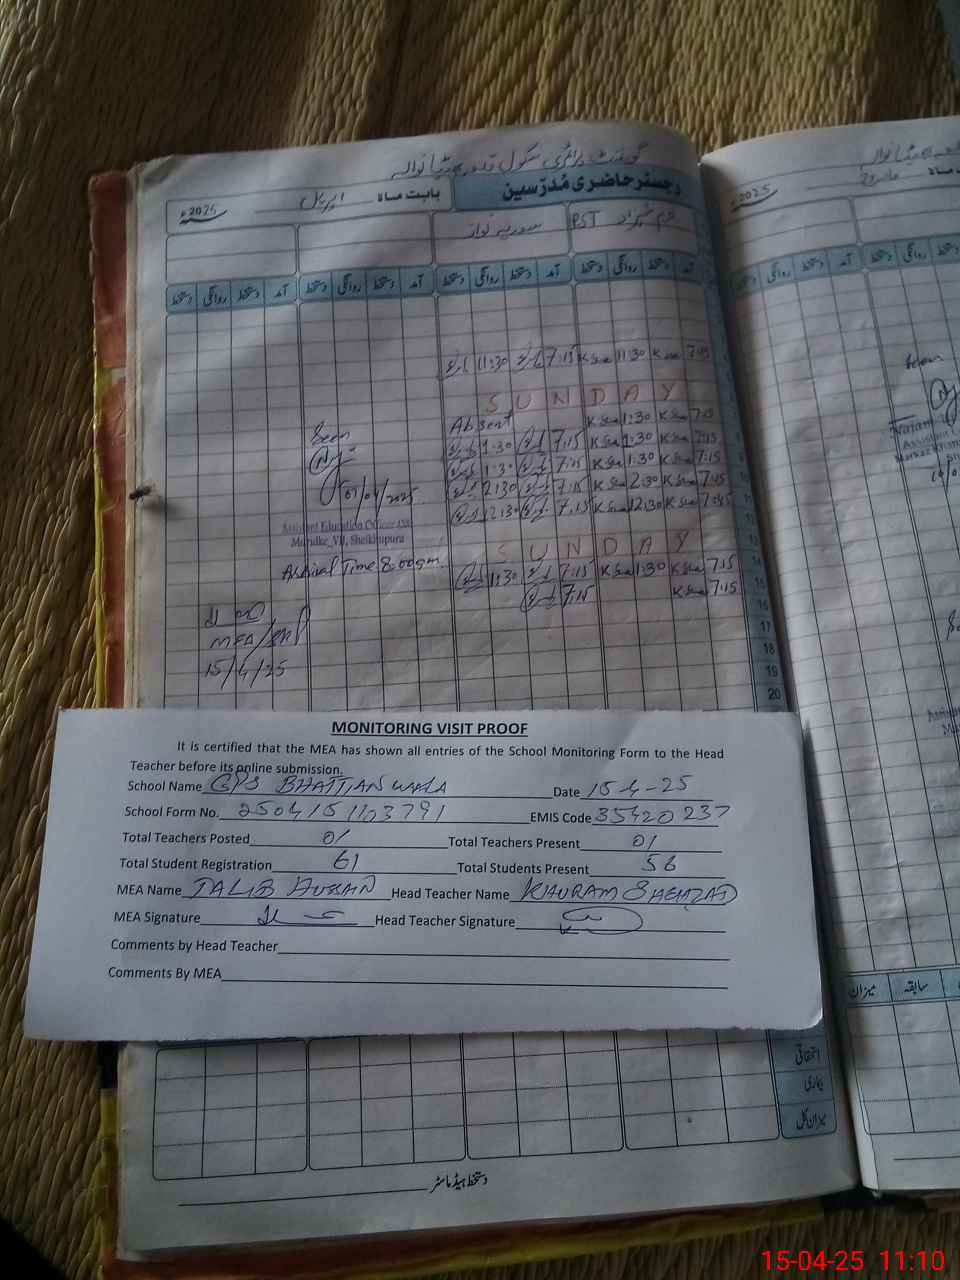 گورنمنٹ پرائمری سکول قلعہ بھٹیانوالہ
رجسٹر حاضری مُدرّسین
بابت ماہ اپریل 2025ء
خرم شہزاد PST
آمد دستخط روانگی دستخط آمد دستخط روانگی دستخط آمد دستخط روانگی دستخط آمد دستخط روانگی دستخط
11:30 7:15 11:30 7:45
S U N D A Y
Absent 1:30 7:15
1:30 7:15 1:30 7:15
1:30 7:15 1:30 7:15
12:30 7:15 2:30 7:45
12:30 7:15 12:30 7:45
S U N D A Y
11:30 7:15 1:30 7:15
7:15 7:15
16
17
18
19
20
Seen
07/04/2025
Assistant Education Officer
Muridke_VII, Sheikhupura
Arrival Time 8:00am
MEA/SKP
15/4/25
MONITORING VISIT PROOF
It is certified that the MEA has shown all entries of the School Monitoring Form to the Head
Teacher before its online submission.
School Name GPS BHATTIAN WALA Date 15-4-25
School Form No. 2504151103791 EMIS Code 35420237
Total Teachers Posted 01 Total Teachers Present 01
Total Student Registration 61 Total Students Present 56
MEA Name TALIB HUSSAIN Head Teacher Name KHURAM SHEHZAD
MEA Signature Head Teacher Signature
Comments by Head Teacher
Comments By MEA
اتفاقی
بیماری
میزان کل
دستخط ہیڈ ماسٹر
2025ء مارچ
دستخط روانگی دستخط آمد دستخط روانگی
Seen
میزان سابقہ
15-04-25 11:10